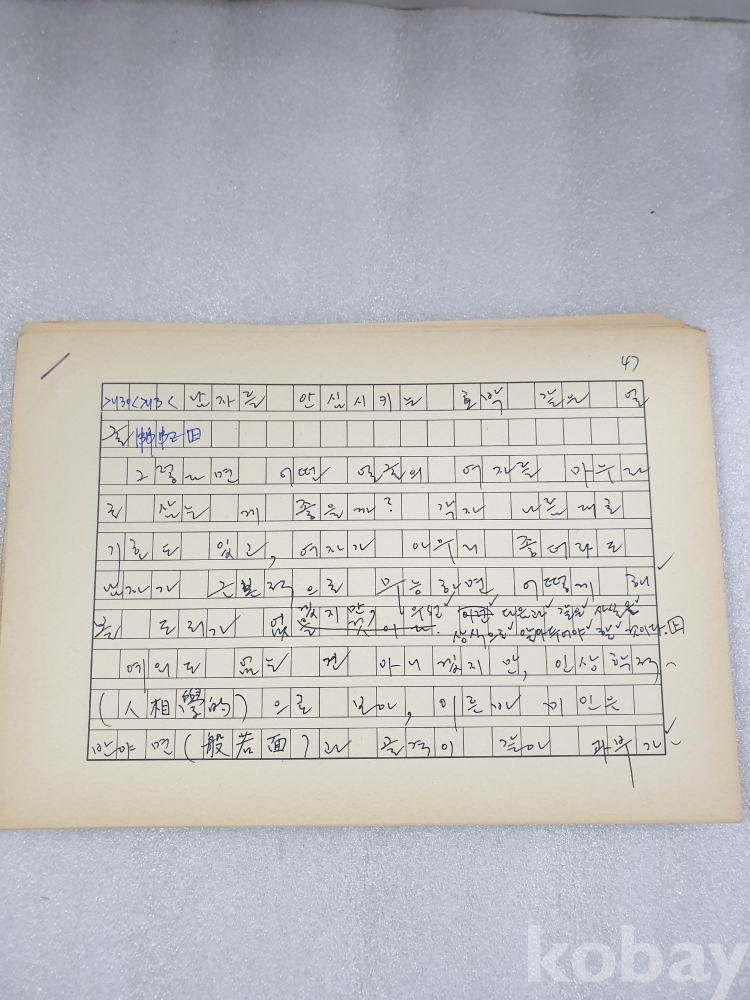 47
남자를 안심시키는 호박 같은 얼
굴
그렇다면 어떤 얼굴의 여자를 아누라
로 삼는 게 좋을까? 각자 나름대로
기호도 있고, 여자가 아무리 좋더라도
남자가 근본적으로 무능하면 어떻게 해
볼 도리가 없
겠지만,
예외도 없는 건 아니겠지만, 인상학적
(人相學的)으로 보아, 이른바 미인은
반야면(般若面)과 골격이 같아 과부가
kobay